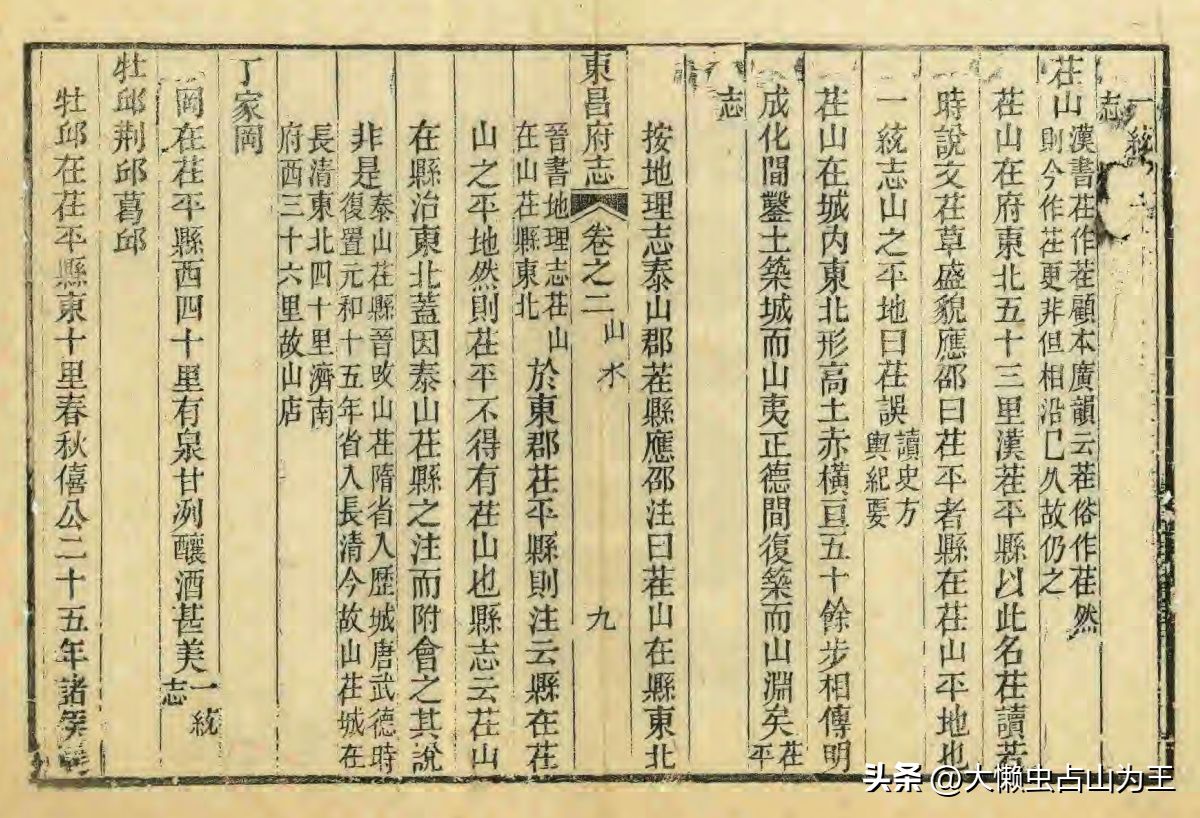 一統
志
茌山
漢書茌作茬顧本廣韻云茬俗作茌然
則今作茌更非但相沿已久故仍之
茌山在府東北五十三里漢茬平縣以此名茌讀若
時說文茌草盛貌應邵曰茌平者縣在茌山平地也
一統志山之平地曰茌誤
讀史方
輿紀要
茌山在城內東北形高土赤橫亘五十餘步相傳明
成化間鑿土築城而山夷正德間復築而山淵矣
茌
平
志
按地理志泰山郡茬縣應邵注曰茬山在縣東北
東昌府志 卷之二 山水 九
晉書地理志茌山
在山茌縣東北
於東郡茌平縣則注云縣在茌
山之平地然則茌平不得有茌山也縣志云茌山
在縣治東北蓋因泰山茌縣之注而附會之其說
非是
泰山茌縣晉改山茌隋省入歷城唐武德時
復置元和十五年省入長清今故山茌城在
長清東北四十里濟南
府西三十六里故山店
丁家岡
岡在茌平縣西四十里有泉甘冽釀酒甚美
一統
志
牡邱荆邱葛邱
牡邱在茌平縣東十里春秋僖公二十五年諸侯
头条 @大懒虫占山为王